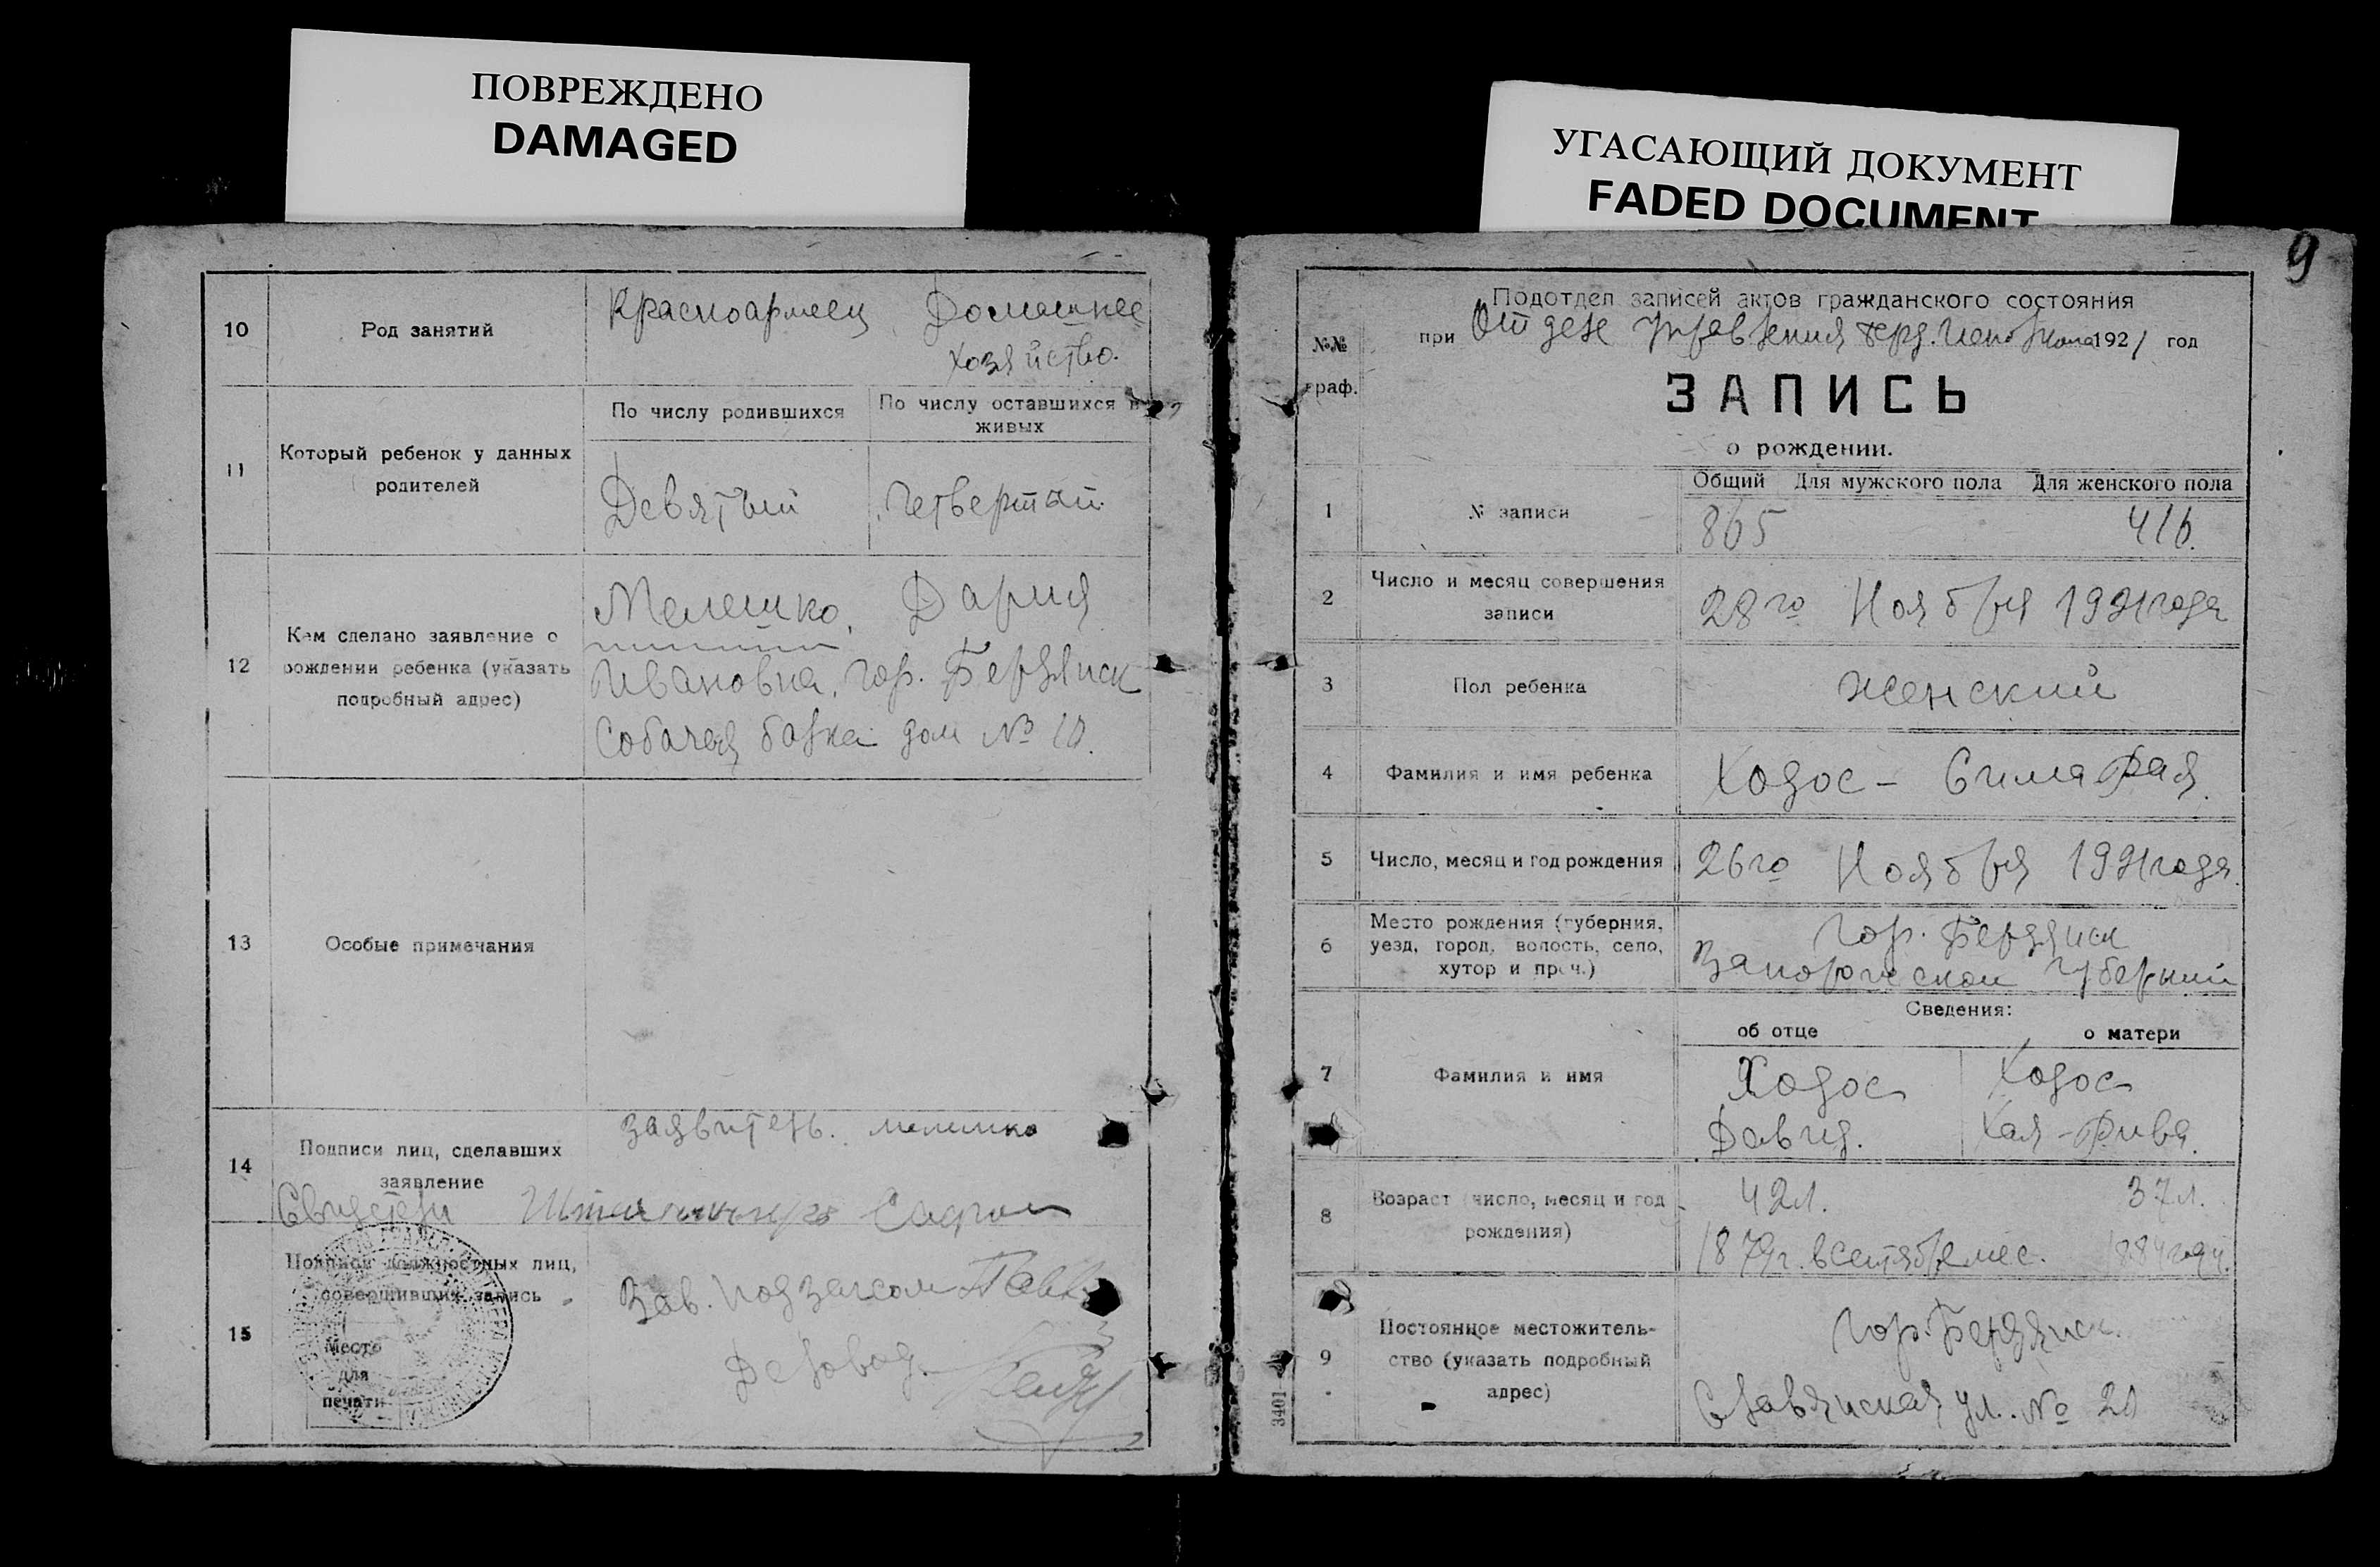 ПОВРЕЖДЕНО
DAMAGED
УГАСАЮЩИЙ ДОКУМЕНТ
FADED DOCUMENT
10
Род занятий
Красноармеец
Домашнее
хозяйство.
11
Который ребенок у данных
родителей
По числу родившихся
По числу оставшихся в
живых
Девятый
Четвертый
12
Кем сделано заявление о
рождении ребенка (указать
подробный адрес)
Мелешко, Дария
Ивановна, гор. Бердянск
Собачая балка дом № 10.
13
Особые примечания
14
Подписи лиц, сделавших
заявление
Заявитель. Мелешко
Свидетели
15
Подписи должностных лиц,
совершивших запись
Место
для
печати
Зав. Подзагсом
Деловод.
9
№№
граф.
Подотдел записей актов гражданского состояния
при Отделе Управления Берд. Исполкома 1921 год
ЗАПИСЬ
о рождении.
1
№ записи
Общий Для мужского пола Для женского пола
865 416.
2
Число и месяц совершения
записи
28го Ноября 1921 года
3
Пол ребенка
Женский
4
Фамилия и имя ребенка
Ходос - Сима Рая.
5
Число, месяц и год рождения
26го Ноября 1921 года.
6
Место рождения (губерния,
уезд, город, волость, село,
хутор и проч.)
Гор. Бердянск
Запорожской губернии
Сведения:
об отце о матери
7
Фамилия и имя
Ходос
Давид.
Ходос
Хая-Рива.
8
Возраст (число, месяц и год
рождения)
42 л.
1879 г. в сентябре мес.
37 л.
1884 году.
9
Постоянное местожитель-
ство (указать подробный
адрес)
Гор. Бердянск.
Славянская ул. № 20
3401